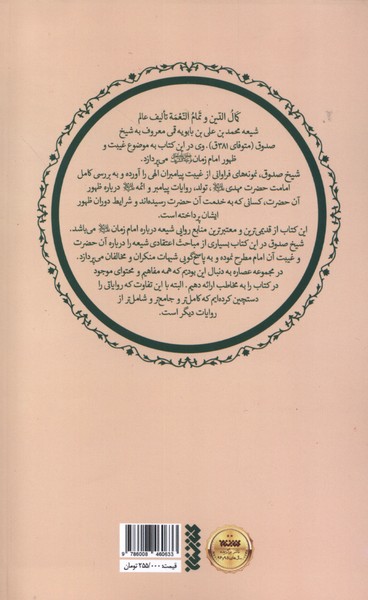 کمال الدّین و تمام النّعمة تألیف عالم
شیعه محمد بن علی بن بابویه قمی معروف به شیخ
صدوق (متوفای ۳۸۱ق). وی در این کتاب به موضوع غیبت و
ظهور امام زمان می‌پردازد.
شیخ صدوق، نمونه‌های فراوانی از غیبت پیامبران الهی را آورده و به بررسی کامل
امامت حضرت مهدی، تولد، روایات پیامبر و ائمه درباره ظهور
آن حضرت، کسانی که به خدمت آن حضرت رسیده‌اند و شرایط دوران ظهور
ایشان پرداخته است.
این کتاب از قدیمی‌ترین و معتبرترین منابع روایی شیعه درباره امام زمان می‌باشد.
شیخ صدوق در این کتاب بسیاری از مباحث اعتقادی شیعه را درباره آن حضرت
و غیبت آن امام مطرح نموده و به پاسخ‌گویی شبهات منکران و مخالفان می‌پردازد.
در مجموعه عصاره به دنبال این بودیم که همه مفاهیم و محتوای موجود
در کتاب را به مخاطب ارائه دهیم. البته با این تفاوت که روایاتی را
دستچین کرده‌ایم که کامل‌تر و جامع‌تر و شامل‌تر از
روایات دیگر است.
9 786008 460633
قیمت: ۲۵۵/۰۰۰ تومان